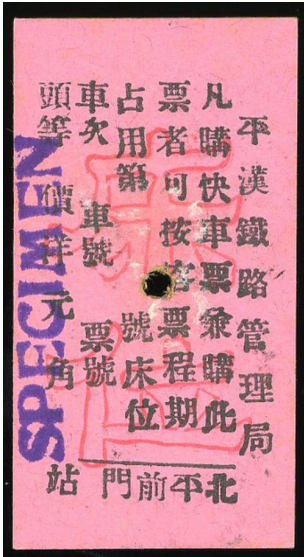 平漢鐵路管理局
凡購快車票兼購此
票者可按客票程期
占用第 號床位
車次 車號 票號
頭等 價洋 元 角
北平前門 站
SPECIMEN